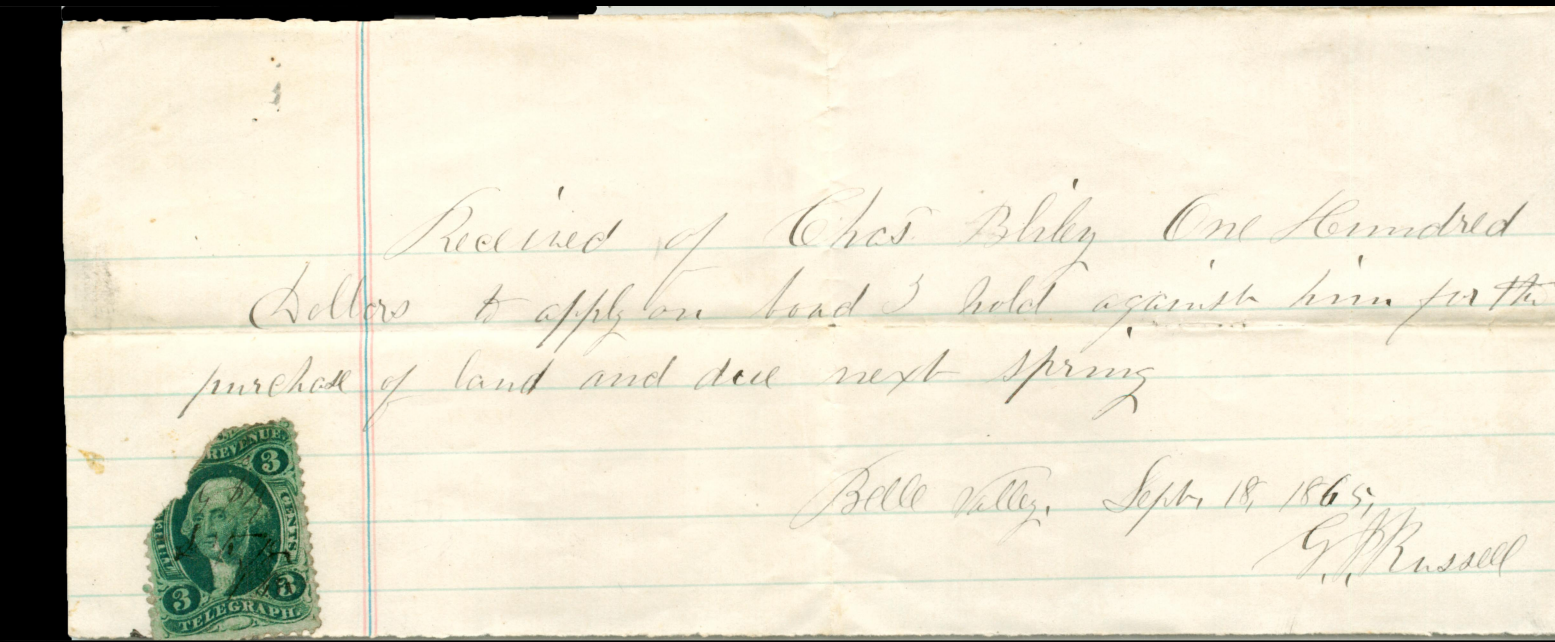 Received of Chas. Bliley One Hundred
Dollars to apply on bond I hold against him for the
purchase of land and due next spring
Belle Valley. Sept. 18, 1865,
G. J. Russell
REVENUE
3
THREE CENTS
3 3
TELEGRAPH.